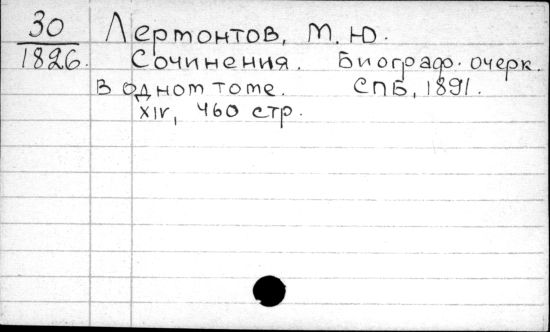 30 Лермонтов, М. Ю.
1826. Сочинения. Биограф. очерк.
В одном томе. СПБ, 1891.
XIV, 460 стр.